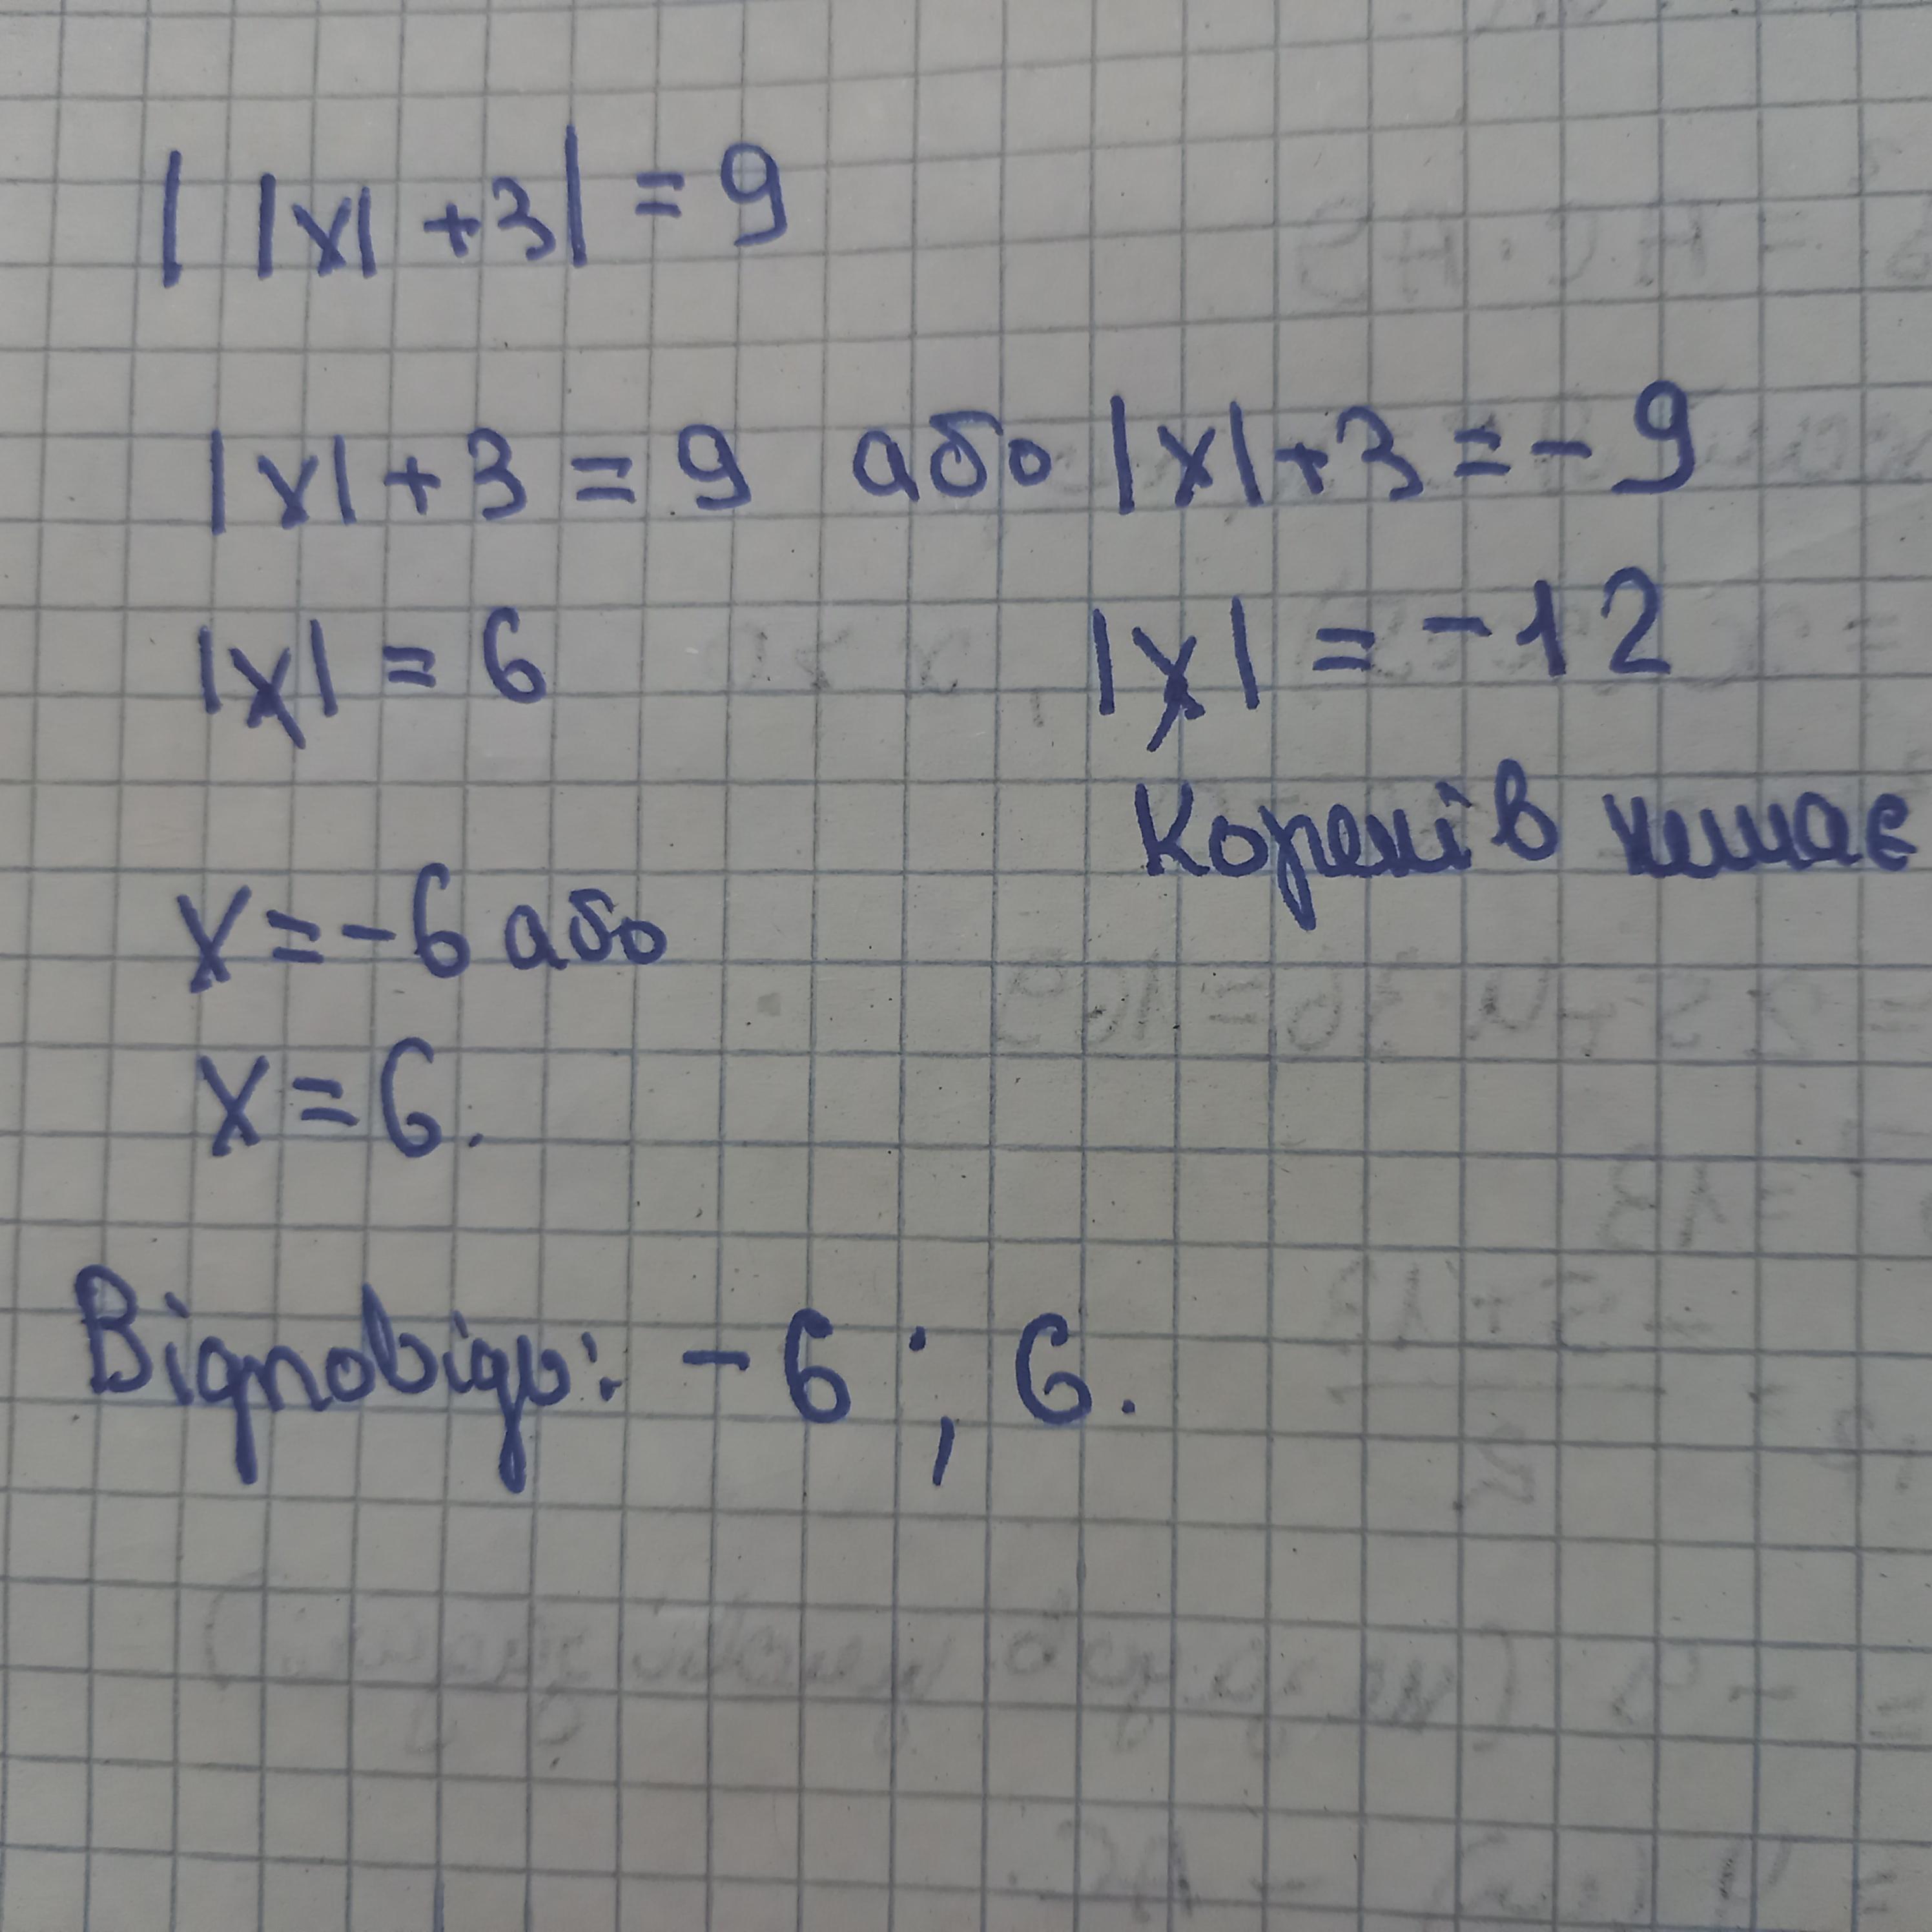 | |x| + 3| = 9
|x| + 3 = 9 або |x| + 3 = - 9
|x| = 6 |x| = - 12
Коренів немає
x = - 6 або
x = 6.
Відповідь: - 6 ; 6.